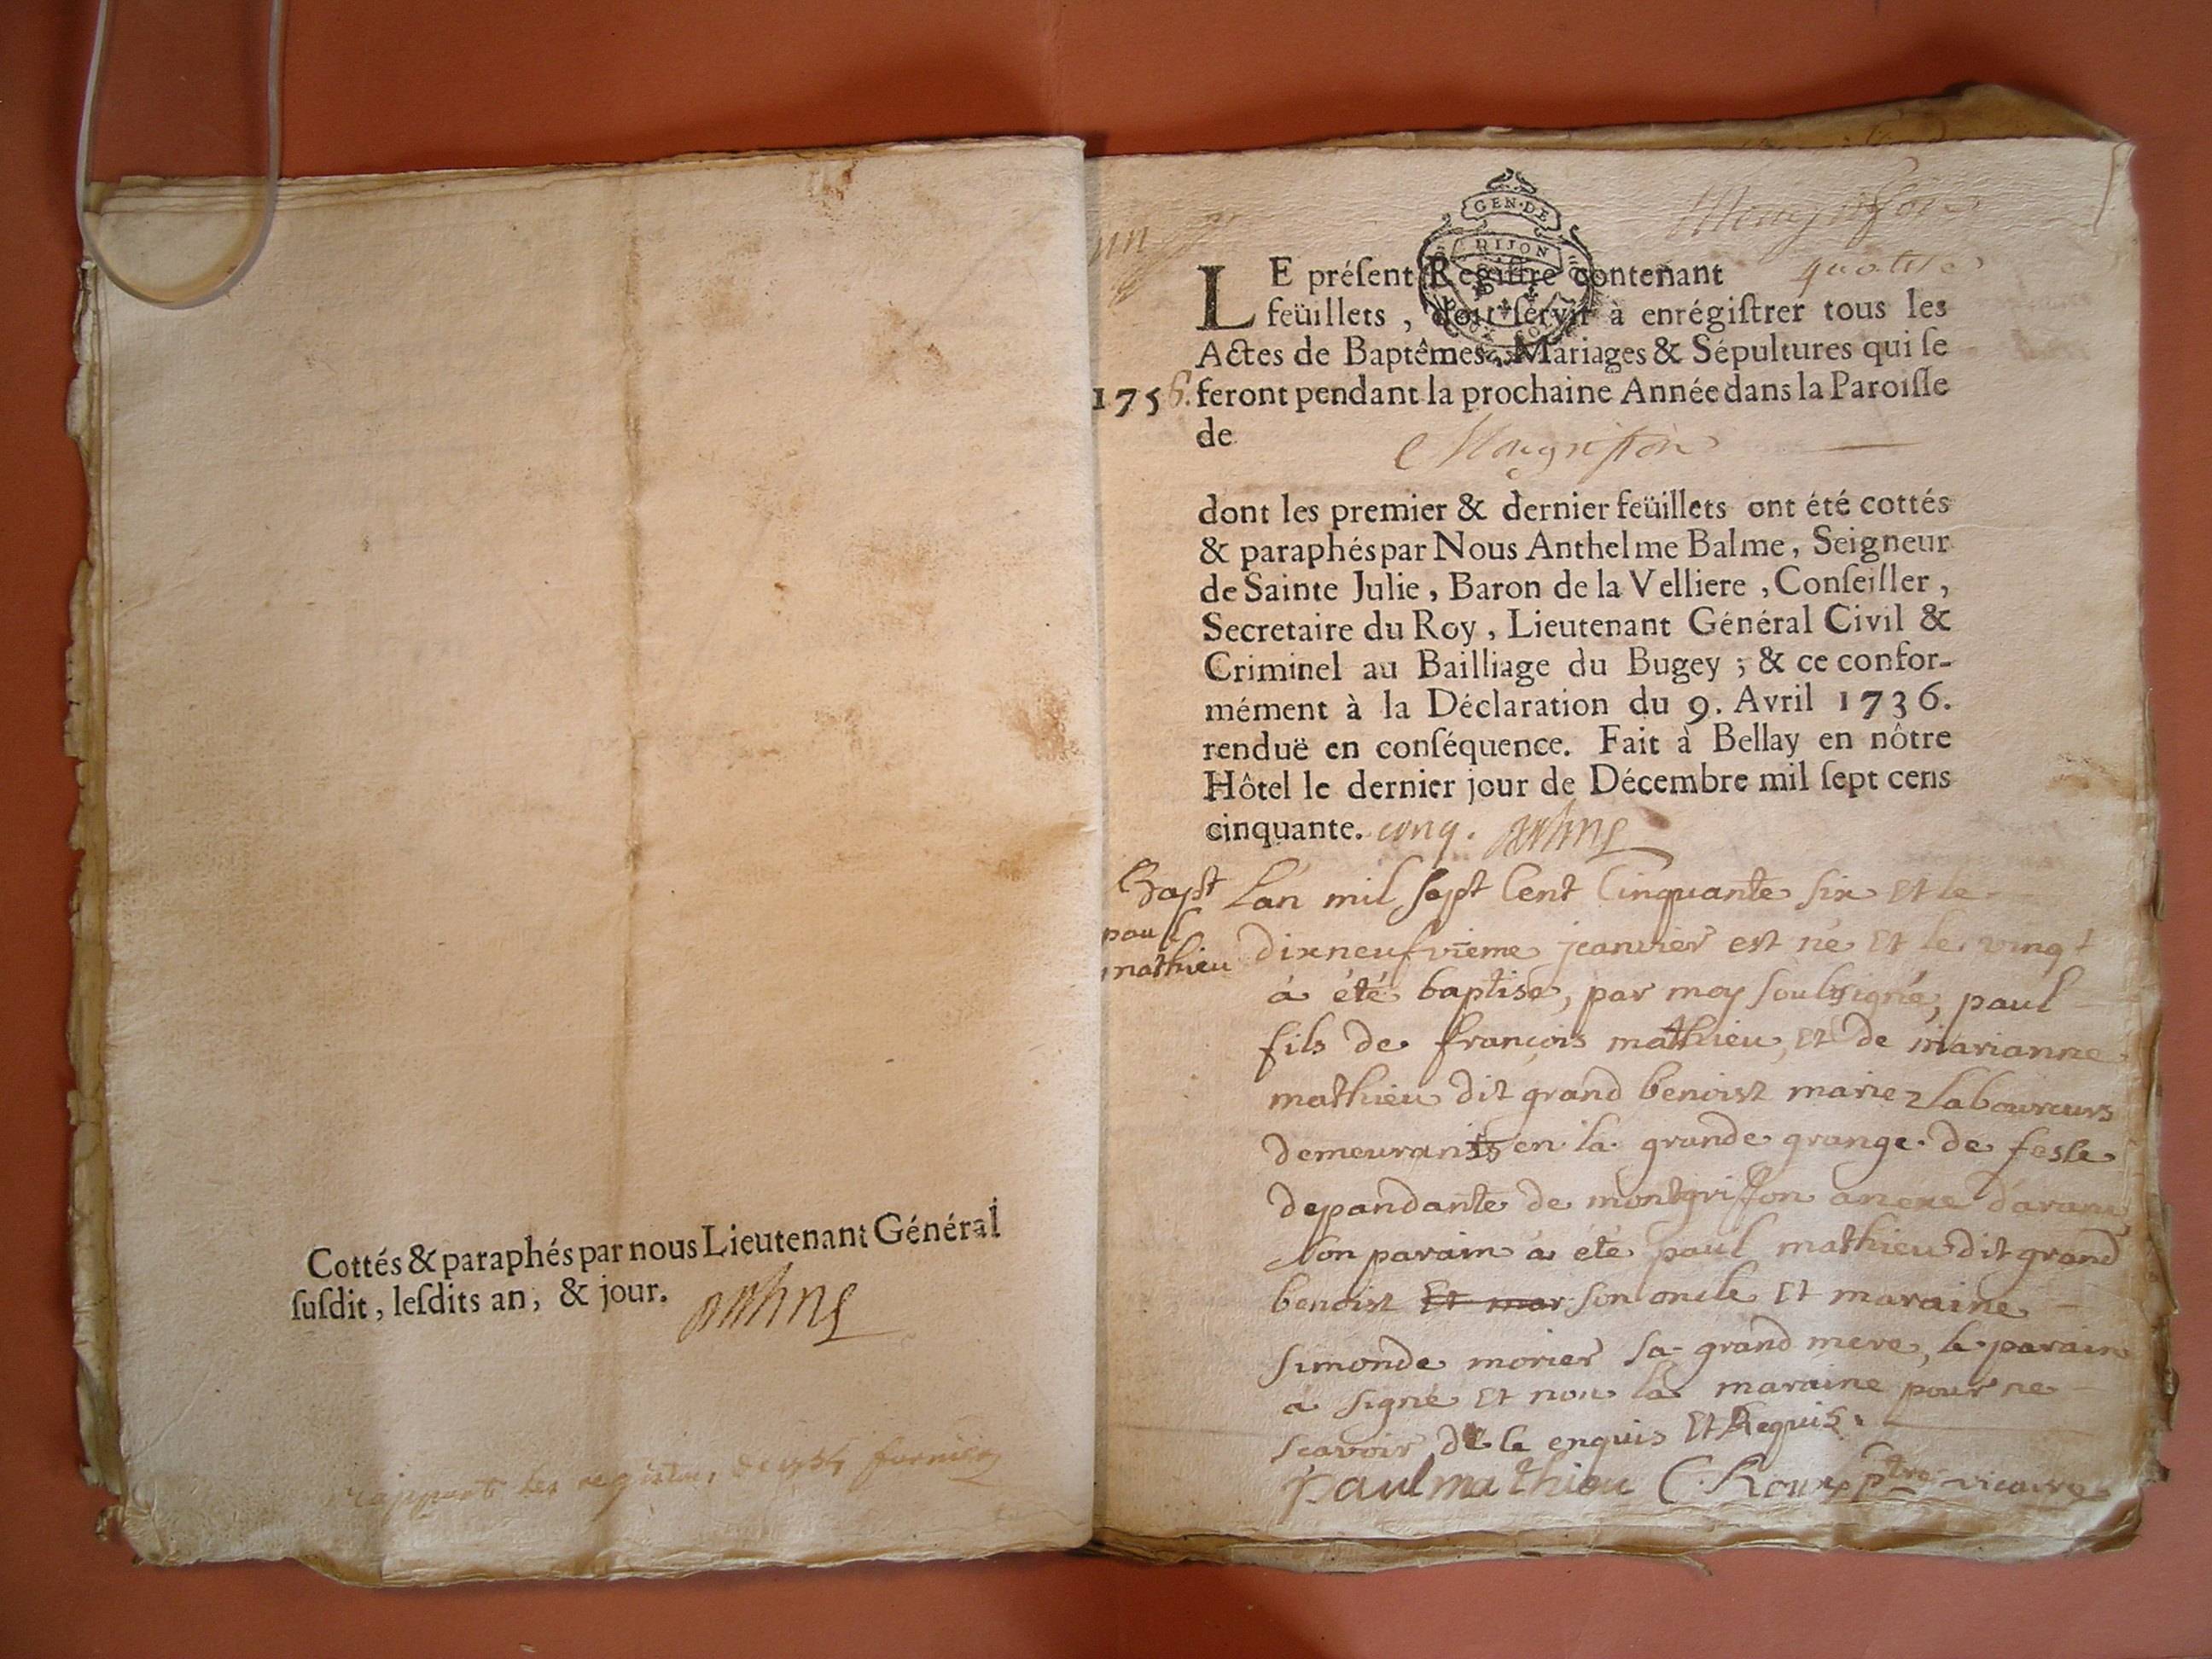 Cottés & paraphés par nous Lieutenant Général
suſdit, leſdits an, & jour.
GEN·DE
DIJON
quatre
LE préſent Regiſtre contenant
feüillets, doit ſervir à enrégiſtrer tous les
Actes de Baptêmes, Mariages & Sépultures qui ſe
1756. feront pendant la prochaine Année dans la Paroiſſe
de
Mongriffon
dont les premier & dernier feüillets ont été cottés
& paraphés par Nous Anthelme Balme, Seigneur
de Sainte Julie, Baron de la Velliere, Conſeiller,
Secretaire du Roy, Lieutenant Général Civil &
Criminel au Bailliage du Bugey; & ce confor-
mément à la Déclaration du 9. Avril 1736.
renduë en conſéquence. Fait à Bellay en nôtre
Hôtel le dernier jour de Décembre mil ſept cens
cinquante. cinq.
Bapt
paul
mathieu
Lan mil sept Cent Cinquante six Et le
dixneufvieme jeanvier est né Et le vingt
à été baptisé, par moy soubsigné, paul
fils de françois mathieu, Et de marianne
mathieu dit grand benoist mariez laboureurs
demeurants en la grande grange de fesle
depandante de montgriffon anexe d'aranc,
son parain à été paul mathieu dit grand
benoist Et mar son oncle Et maraine
simonde morier sa grand mere, le parain
à signé Et non la maraine pour ne
scavoir de le enquis Et Requis.
paul mathieu C. Roux ptre vicaire